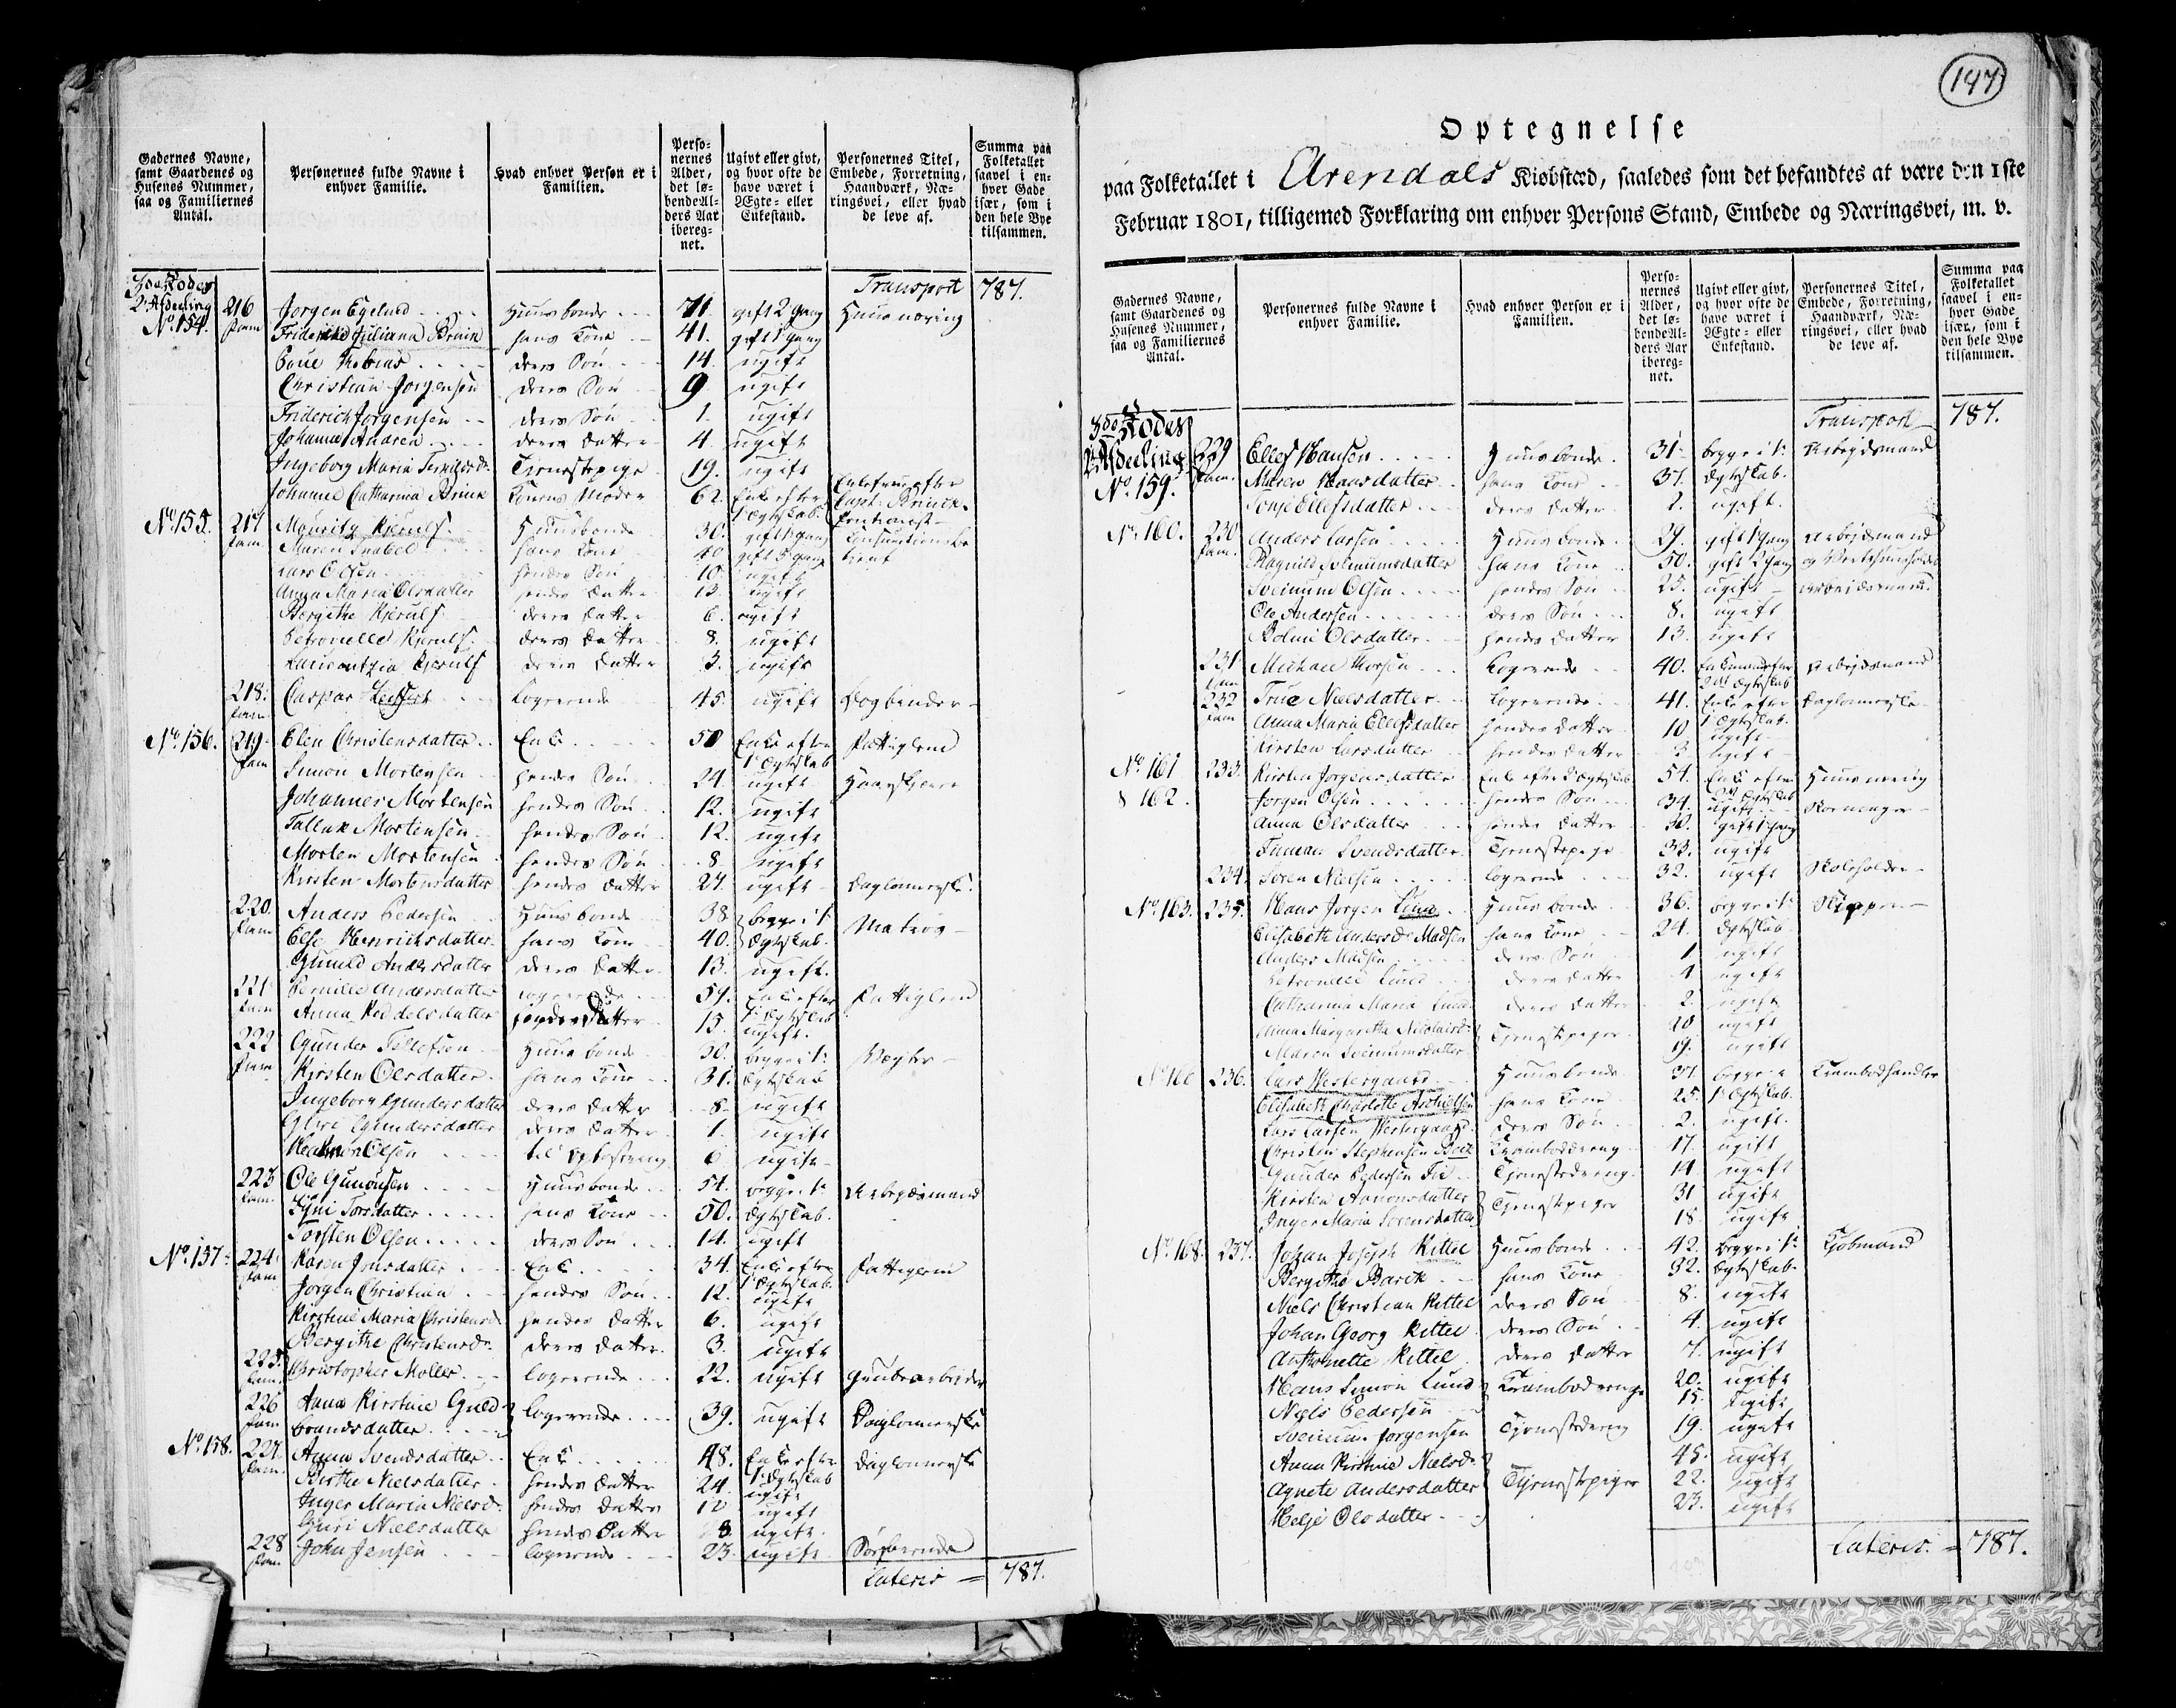 Gadernes Navne, samt Gaardenes og Husenes Nummer, saa og Familiernes Antal.
Personernes fulde Navne i enhver Familie.
Hvad enhver Person er i Familien.
Personernes Alder, det løbende Alders Aar iberegnet.
Ugivt eller givt, og hvor ofte de have været i Ægte- eller Enkestand.
Personernes Titel, Embede, Forretning, Haandværk, Næringsvei, eller hvad de leve af.
Summa paa Folketallet saavel i enhver Gade især, som i den hele Bye tilsammen.
3die Rodes Transport 787.
2. Afdeling
No. 154. 216 fam Jorgen Egelund Huusbonde 71. gift 2 gang Huusnæring
Juliana hans Kone 41. gift 1 gang
deres Søn 14. ugift
Christian Jorgensen deres Søn 9 ugift
Friderich Jorgensen deres Søn 1. ugift
Johanna Andrea deres Datter 4. ugift
Ingeborg Maria Tienestepige 19. ugift
Johanne Catharina Konens Moder 62. Enke efter
1. Ægteskab.
No. 155. 217 fam Mouritz Kjerulf Huusbonde 30. gift 1 gang
Maren hans Kone 40 gift gang
Lars Olsen hendes Søn 10 ugift
Anna Maria Olsdatter hendes Datter 13. ugift
Bergithe Kjerulf deres Datter 6. ugift
Petronelle Kjerulf deres Datter 8. ugift
Kjerulf deres Datter 3. ugift
218. fam Caspar Logerende 45. ugift Bogbinder
No. 156. 219 fam Elen Christensdatter Enke 50 Enke efter 1. Ægteskab Fattiglem
Simon Mortensen hendes Søn 24. ugift
Johannes Mortensen hendes Søn 12. ugift
Tallak Mortensen hendes Søn 12. ugift
Morten Mortensen hendes Søn 8 ugift
Kirsten Mortensdatter hendes Datter 27. ugift Daglønnerske
220. fam Anders Pedersen Huusbonde 38 begge i 1. Matros
Else Henrichsdatter hans Kone 40. Ægteskab.
Gunild Andersdatter deres Datter 13. ugift.
221 fam Pernille Andersdatter Logerende 59. Enke efter 1. Ægteskab Fattiglem
Anna hendes Datter 15. ugift.
222 fam Gunder Tellefsen Huusbonde 30. begge i 1. Vægter
Kirsten Olsdatter hans Kone 31. Ægteskab
Ingeborg Gundersdatter deres Datter 8. ugift
Gundersdatter deres Datter 1. ugift
Olsen til Opfostring 6 ugift
223 fam Ole Gunøusen Huusbonde 54. begge i 1. Arbejdsmand
Torsdatter hans Kone 50. Ægteskab.
Torsten Olsen deres Søn 14. ugift
No. 157. 224. fam Karen Jensdatter Enke 34. Enke efter 1. Ægteskab Fattiglem
Jorgen Christian hendes Søn 12. ugift
Kirstine Maria Christensd. hendes Datter 6. ugift
Bergithe Christensd. deres Datter 3. ugift
225. fam Christopher Møller Logerende 22. ugift
226 fam Anna Kirstine Guld-
brandsdatter Logerende 39. ugift Daglønnerske
No. 158. 227. fam Anna Svendsdatter Enke 48. Enke efter 1. Ægteskab Daglønnerske
Birthe Nielsdatter hendes Datter 24. ugift
Inger Maria Nielsd. hendes Datter 12 ugift
Guri Nielsdatter hendes Datter 8. ugift
228 fam John Jensen Logerende 23. ugift Søefarende
Lateris = 787.
147
Optegnelse
paa Folketallet i Arendals Kiøbstæd, saaledes som det befandtes at være den 1ste
Februar 1801, tilligemed Forklaring om enhver Persons Stand, Embede og Næringsvei, m. v.
Gadernes Navne, samt Gaardenes og Husenes Nummer, saa og Familiernes Antal.
Personernes fulde Navne i enhver Familie.
Hvad enhver Person er i Familien.
Personernes Alder, det løbende Alders Aar iberegnet.
Ugivt eller givt, og hvor ofte de have været i Ægte- eller Enkestand.
Personernes Titel, Embede, Forretning, Haandværk, Næringsvei, eller hvad de leve af.
Summa paa Folketallet saavel i enhver Gade især, som i den hele Bye tilsammen.
3die Rodes Transport 787.
2. Afdeling
No. 159. 229 fam. Ellef Hansen Huusbonde 31. begge i 1. Arbejdsmand
Maren Hansdatter hans Kone 37. Ægteskab.
Tonje Ellefsdatter deres Datter 2. ugift.
No. 160. 230 fam. Anders Larsen Huusbonde 29. gift 1 gang Arbejdsmand
Ragnild hans Kone 50. gift 2 gang
Olsen hendes Søn 25. ugift Arbeidsmand.
Ole Andersen deres Søn 8. ugift
Olsdatter hendes Datter 13. ugift
231 fam Michael Thorsen Logerende 40. Enkemand efter Ægteskab Arbejdsmand
232 fam True Nielsdatter Logerende 41. Enke efter 1. Ægteskab Daglønnerske
Anna Maria Ellefsdatter hendes Datter 10 ugift
Kirsten Larsdatter hendes Datter 3 ugift
No. 161 233. Kirsten Jorgensdatter Enke 54. Enke efter Huusnæring
& 162. Jorgen Olsen hendes Søn 34. ugift
Anna Olsdatter hendes Datter 30. gift 1 gang
Svendsdatter Tjenestepige 33. ugift
234. Søren Nielsen Logerende 32. ugift Skoleholder
No. 163. 235. Hans Jorgen Lund Huusbonde 36. begge i 1. Skipper
Elisabeth Andersdr. Madsen hans Kone 24. Ægteskab
Anders Madsen deres Søn 1 ugift
Petronelle Lund deres Datter 4 ugift
Catharina Maria Lund deres Datter 2. ugift
Anna Margaretha Nicolaisd. Tjenestepiger 20 ugift
Maren 19. ugift
236. Lars Westergaard Huusbonde 37 begge i Krambodhandler
Elisabeth Charlotte hans Kone 25. 1. Ægteskab.
Lars Larsen Westergaard deres Søn 2. ugift.
Christen Stephensen Kramboddreng 17. ugift
Gunder Pedersen Tjenestedreng 14. ugift
Kirsten Aanonsdatter Tjenestepiger 31 ugift
Inger Maria Sorensdatter 18. ugift
No. 168. 237. Johan Joseph Kittel Huusbonde 42. begge i 1. Kjøbmand
Bergithe hans Kone 32. Ægteskab.
Niels Christian Kittel deres Søn 8. ugift
Johan Georg Kittel deres Søn 4. ugift
Anthonette Kittel deres Datter 7. ugift
Hans Simon Lund Krambodrenge 20. ugift
Niels Pedersen 15. ugift
Jorgensen Tjenestedreng 19. ugift
Anna Kirstine Nielsd. 45. ugift
Agnete Andersdatter Tjenestepiger 22. ugift
Helje Olsdatter 23. ugift
Lateris. = 787.